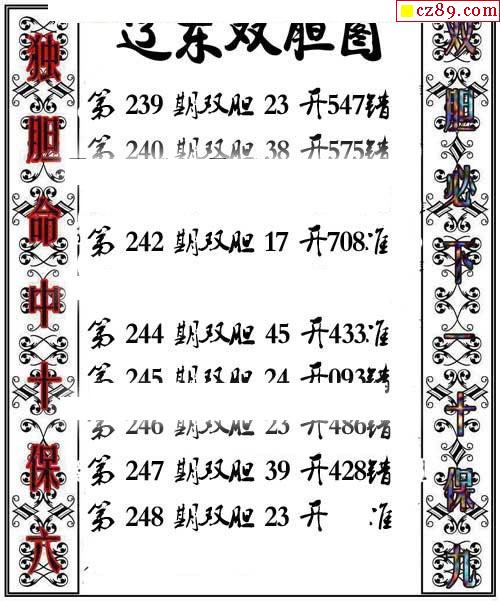 cz89.com
辽东双胆图
第 239 期双胆 23 开547错
第 240 期双胆 38 开575错
第 242 期双胆 17 开708准
第 244 期双胆 45 开433准
第 245 期双胆 24 开093错
第 246 期双胆 23 开486错
第 247 期双胆 39 开428错
第 248 期双胆 23 开 准
独胆命中十保六
双胆必下一十保九